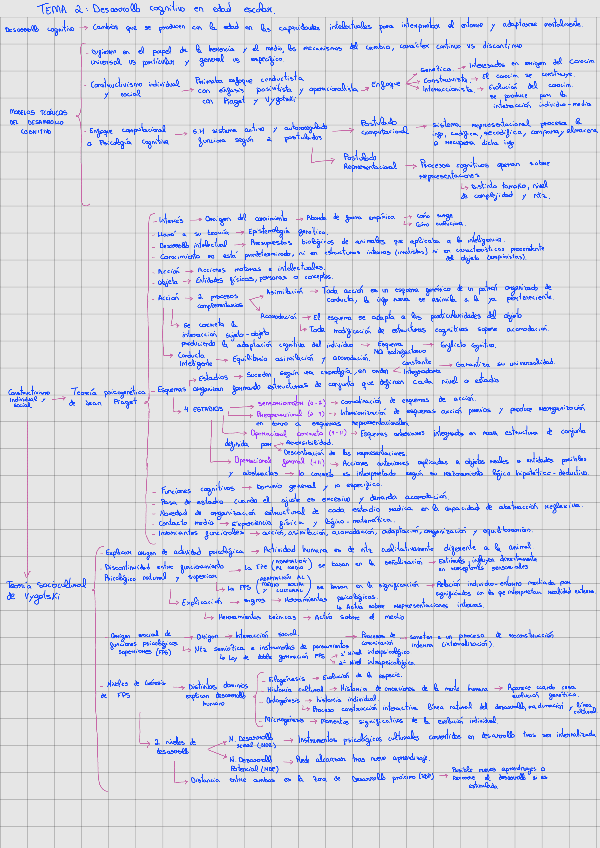 TEMA 2: Desarrollo cognitivo en edad escolar.
Desarrollo cognitivo → Cambios que se producen con la edad en las capacidades intelectuales para interpretar el entorno y adaptarse mentalmente.
MODELOS TEÓRICOS DEL DESARROLLO COGNITIVO
- Difieren en el papel de la herencia y el medio, los mecanismos del cambio, carácter continuo vs discontinuo
universal vs particular y general vs específico.
- Constructivismo individual y social → Primaba enfoque conductista con énfasis positivista y operacionalista → con Piaget y Vygotski → Enfoque
Genética → Interesados en origen del conocim
Construtivista → El conocim se construye.
Interaccionista → Evolución del conocim se produce por la interacción individuo-medio
- Enfoque computacional o Psicología Cognitiva → S.H sistema activo y autorregulado funciona según 2 postulados
→ Postulado computacional → Sistema representacional procesa la info, codifica, decodifica, compara, almacena o recupera dicha info
→ Postulado Representacional → Procesos cognitivos operan sobre representaciones
→ Distinto tamaño, nivel de complejidad y ntz.
Constructivismo individual y social → Teoría psicogenética de Jean Piaget
- Interés → Origen del conocimiento → Aborda de forma empírica → Cómo surge
→ Cómo evoluciona.
- Llamó a su teoría → Epistemología genética.
- Desarrollo intelectual → Presupuestos biológicos de animales que aplicaba a la inteligencia.
- Conocimiento no está predeterminado, ni en estructuras internas (innatistas) ni en características procedentes del objeto (empiristas).
- Acción → Acciones motoras e intelectuales.
- Objeto → Entidades físicas, personas o conceptos.
- Acción → 2 procesos complementarios
Asimilación → Toda acción es un esquema genérico de un patrón organizado de conducta, la info nueva se asimila a la ya perteneciente.
Acomodación → El esquema se adapta a las particularidades del objeto
→ Toda modificación de estructuras cognitivas supone acomodación.
→ Se concreta la interacción sujeto-objeto produciendo la adaptación cognitiva del individuo → Esquema → Engloba cognitivo.
→ Conducta Inteligente → Equilibrio asimilación y acomodación. No reduplicativo
constante → Garantiza su universalidad.
→ Estadios → Suceden según una cronología, en orden → Integradores
- Esquemas organizan formando estructuras de conjunto que definen cada nivel o estadio
→ 4 ESTADIOS
→ Sensoriomotor (0-2) → Coordinación de esquemas de acción.
→ Preoperacional (2-7) → Interiorización de esquemas acción previos y produce reorganización en torno a esquemas representacionales
→ Operacional concreto (7-11) → Esquemas anteriores integrados en nueva estructura de conjunto definida por → Reversibilidad.
→ Descentración de las representaciones.
→ Operacional formal (+11) → Acciones anteriores aplicadas a objetos reales o entidades posibles y abstractas → lo concreto es interpretado según su razonamiento lógico hipotético-deductivo.
- Funciones cognitivas → Dominio general y no específico.
- Pasa de estadio cuando el ajuste es excesivo y demanda acomodación.
- Novedad de organización estructural de cada estadio radica en la capacidad de abstracción reflexiva.
- Contacto medio → Experiencia física y lógico-matemática.
- Invariantes funcionales → acción, asimilación, acomodación, adaptación, organización y equilibración.
Teoría Sociocultural de Vygotski
- Explicar origen de actividad psicológica → Actividad humana es de ntz cualitativamente diferente a la animal
- Discontinuidad entre funcionamiento Psicológico natural y superior
→ La FPE (ADAPTACIÓN AL MEDIO) se basan en la señalización → Estímulos influyen directamente en receptores personales
→ La FPS (ADAPTACIÓN AL MEDIO SOCIAL Y CULTURAL) se basan en la significación → Relación individuo-entorno mediada por significados con los que interpretan realidad externa
→ Explicación → Signos → Herramientas psicológicas.
→ Activa sobre representaciones internas.
→ Herramientas técnicas → Activa sobre el medio
- Origen social de funciones psicológicas superiores (FPS)
→ Origen → Interacción social. → Procesos de comunicación → Someten a un proceso de reconstrucción interna (internalización).
→ Ntz semiótica e instrumentos de pensamientos
→ La Ley de doble formación FPS → 1er Nivel interpsicológico
→ 2º Nivel intrapsicológico
- Niveles de Génesis de FPS → Distintos dominios explican desarrollo humano
- Filogénesis → Evolución de la especie.
- Historia cultural → Historia de creaciones de la mente humana → Aparece cuando cesa evolución genética.
- Ontogénesis → historia individual
→ Proceso construcción interactiva línea natural del desarrollo, maduración y línea cultural
- Microgénesis → Momentos significativos de la evolución individual.
→ 2 niveles de desarrollo
N. Desarrollo Real (NDR) → Instrumentos psicológicos culturales convertidos en desarrollo tras ser internalizada
N. Desarrollo Potencial (NDP) → Puede alcanzar tras nuevo aprendizaje.
→ Distancia entre ambas es la Zona de Desarrollo próximo (ZDP) → Posible nuevos aprendizajes o favorece el desarrollo si es estimulada